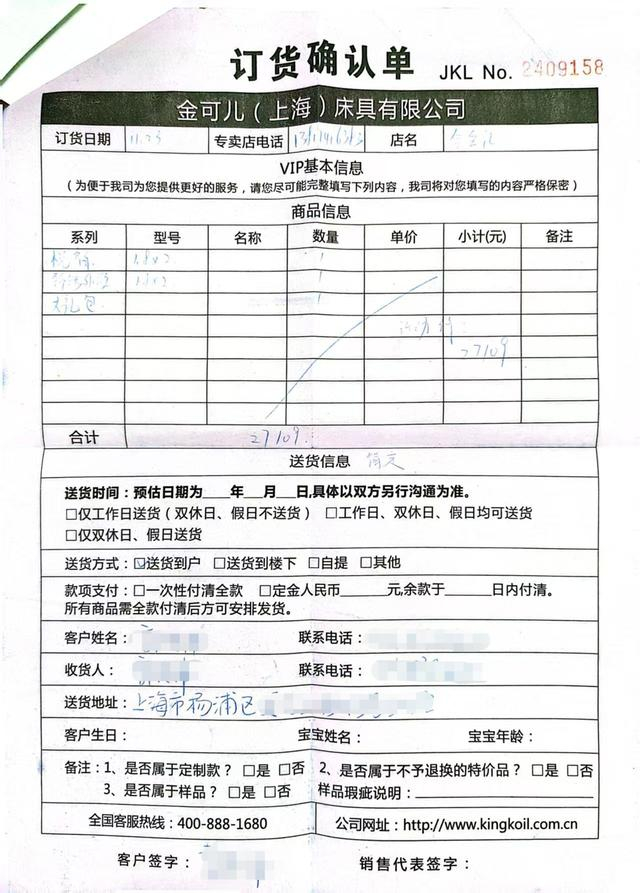 订货确认单 JKL No. 2409158
金可儿（上海）床具有限公司
订货日期 11.23 专卖店电话 店名
VIP基本信息
（为便于我司为您提供更好的服务，请您尽可能完整填写下列内容，我司将对您填写的内容严格保密）
商品信息
系列 型号 名称 数量 单价 小计(元) 备注
1.8×2 1
1.8×2 1
大礼包 1
27109
合计 27109.
送货信息
送货时间：预估日期为____年___月___日,具体以双方另行沟通为准。
□仅工作日送货（双休日、假日不送货） □工作日、双休日、假日均可送货
□仅双休日、假日送货
送货方式：☑送货到户 □送货到楼下 □自提 □其他
款项支付：□一次性付清全款 □定金人民币______元,余款于______日内付清。
所有商品需全款付清后方可安排发货。
客户姓名： 联系电话：
收货人： 联系电话：
送货地址：上海市杨浦区
客户生日： 宝宝姓名： 宝宝年龄：
备注：1、是否属于定制款？□是 □否 2、是否属于不予退换的特价品？□是 □否
3、是否属于样品？□是 □否 样品瑕疵说明：
全国客服热线：400-888-1680 公司网址：http://www.kingkoil.com.cn
客户签字： 销售代表签字：